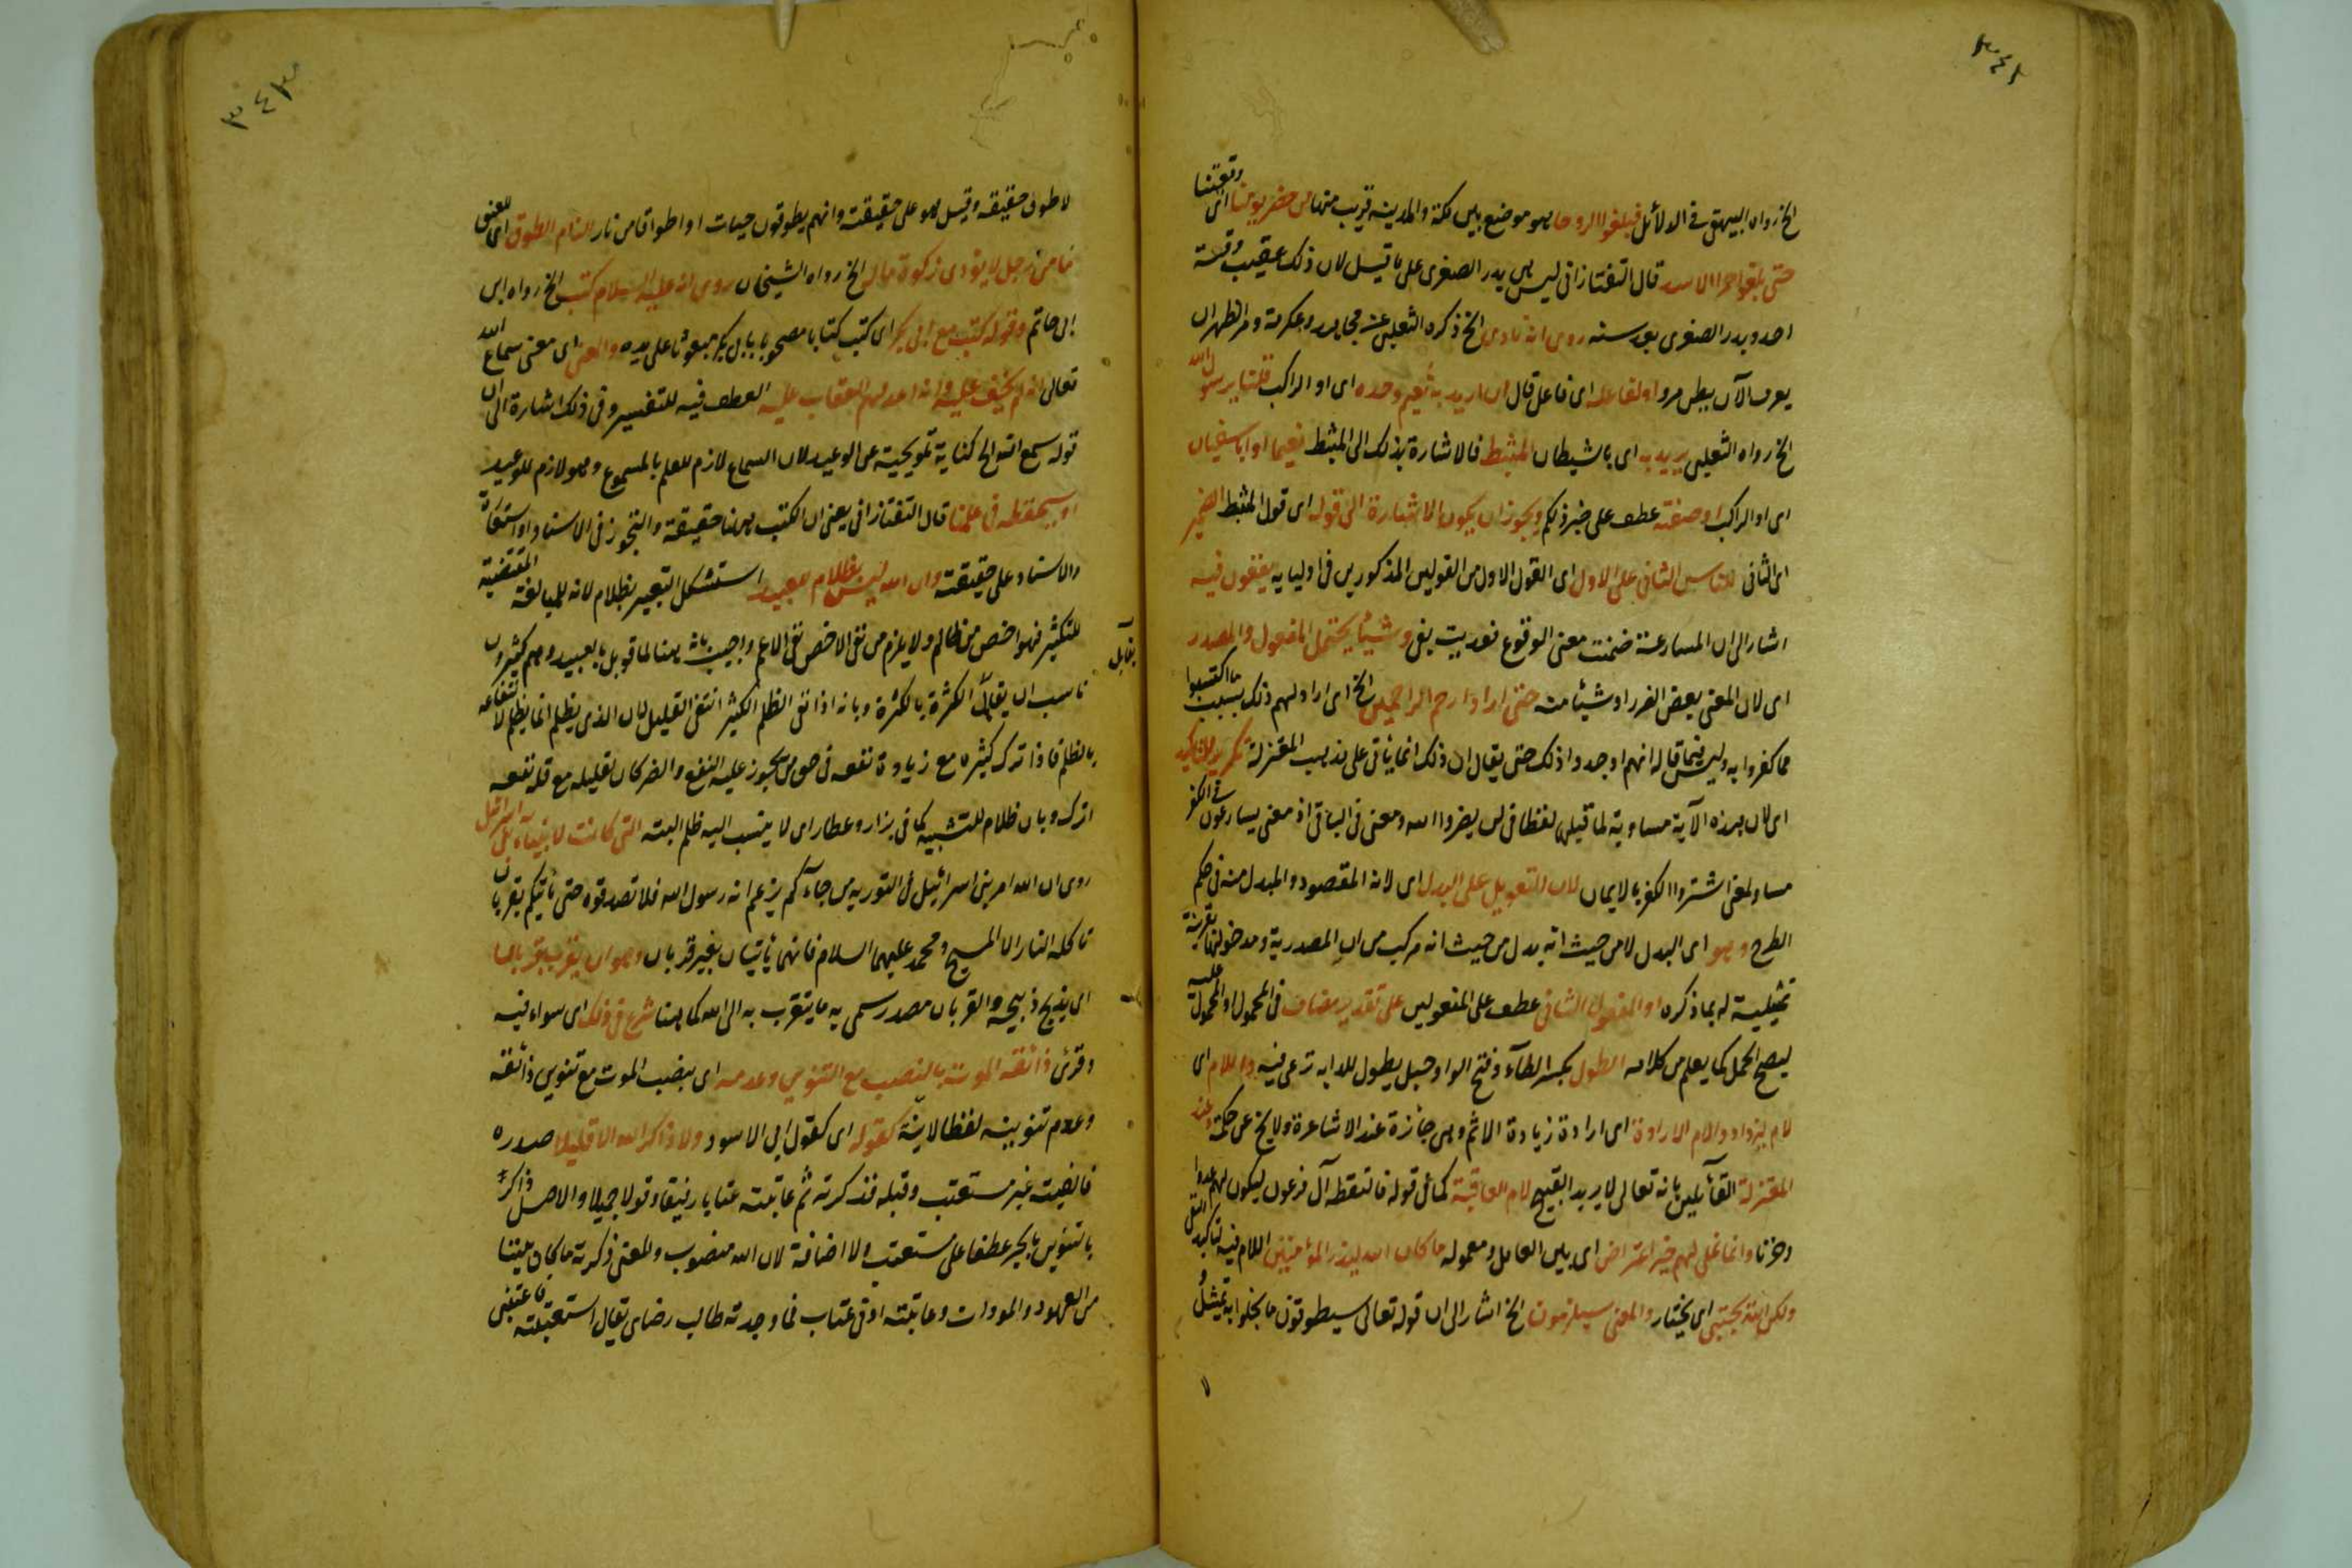 ٣٤٢
الخ رواه البيهقى فى الدلائل فبلغوا الروحا هو موضع بين مكة والمدينة قريب منها من حضر يومنا اى وقعتنا
حتى بلغوا حمرا الاسد قال التفتازانى ليس هى بدر الصغرى على ما قيل لان ذلك عقيب وقعة
احد وبدر الصغرى بعد سنة روى انه نادى الخ ذكره الثعلبى عن مجاهد وعكرمة ومر الظهران
يعرف الآن ببطن مرو او لفاعله اى فاعل قال ان اريد به نعيم وحده اى او الراكب قلنا يرسول الله
الخ رواه الثعلبى يريد به اى بالشيطان المثبط فالاشارة بذلك الى المثبط نعيما او ابا سفيان
اى او الراكب او صفته عطف على خبر ذلكم ويجوز ان يكون الاشارة الى قوله اى قول المثبط الضمير
اى الثانى للناس الثانى على الاول اى القول الاول من القولين المذكورين فى اوليايه يقعون فيه
اشار الى ان المسارعة ضمنت معنى الوقوع فعديت بفى وشيئا يحتمل المفعول والمصدر
اى لان المعنى بعض الضرر او شيئا منه حتى اراد ارحم الراحمين الخ اى اراد لهم ذلك بسبب ما اكتسبوا
مما كفروا به وليس فيما قاله انهم اوجدوا ذلك حتى يقال ان ذلك انما يتأتى على مذهب المعتزلة تكرير للتأكيد
اى لان هذه الآية مساوية لما قبلها لفظا فى لن يضروا الله ومعنى فى الباقى اذ معنى يسارعون فى الكفر
مساو لمعنى اشتروا الكفر بالايمان لان التعويل على البدل اى لانه المقصود والمبدل منه فى حكم
الطرح وهو اى البدل لا من حيث انه بدل من حيث انه مركب من ان المصدرية ومدخولها بقرينة
تمثيلية له بما ذكره او المفعول الثانى عطف على المفعولين على تقدير مضاف فى المحمول او المحمول عليه
ليصح الحمل كما يعلم من كلامه الطول بكسر الطآء وفتح الواو حبل يطول للدابه ترعى فيه واللام اى
لام ليزدادوا لام الارادة اى ارادة زيادة الاثم وهى جائزة عند الاشاعرة ولا يخ عن حكمة وعند
المعتزلة القآئلين بانه تعالى لا يريد القبيح لام العاقبة كما فى قوله فالتقطه آل فرعون ليكون لهم عدوا
وحزنا وانما نملى لهم خير اعتراض اى بين العامل ومعموله ما كان الله ليذر المؤمنين اللام فيه لتأكيد النفى
ولكن الله يجتبى اى يختار والمعنى سيلزمون الخ اشار الى ان قوله تعالى سيطوقون ما بخلوا به تمثيل
لا
٣٤٣
لا طوق حقيقه وقيل هو على حقيقته وانهم يطوقون حيات او اطواقا من نار الزام الطوق اى للعنق
ما من رجل لا يؤدى زكوة ماله الخ رواه الشيخان روى انه عليه السلام كتب الخ رواه ابن
ابى حاتم وقوله كتب مع ابى بكر اى كتب كتابا مصحوبا بابى بكر مبعوثا على يده والمعنى اى معنى سماع الله
تعالى انه لم يخف عليه وانه اعد لهم العقاب عليه العطف فيه للتفسير وفى ذلك اشارة الى ان
قوله سمع الله الخ كناية تلويحية عن الوعيد لان السماع لازم للعلم بالمسموع وهو لازم للوعيد
او سنحفظه فى علمنا قال التفتازانى يعنى ان الكتب ههنا حقيقة والتجوز فى الاسناد او استعارة
والاسناد على حقيقته وان الله ليس بظلام للعبيد استشكل التعبير بظلام لانه للمبالغة المقتضية
للتكثير فهو اخص من ظالم ولا يلزم من نفى الاخص نفى الاعم واجيب بانه ههنا لما قوبل بالعبيد وهم كثيرون
ناسب ان يقابل الكثرة بالكثرة وبانه اذا نفى الظلم الكثير انتفى القليل لان الذى يظلم انما يظلم لانتفاعه
يقابل
بالظلم فاذا ترك كثيره مع زيادة نفعه فى حق من يجوز عليه النفع والضر كان لقليله مع قلة نفعه
اترك وبان ظلام للتشبيه كما فى بزار وعطار اى لا ينسب اليه ظلم البته التى كانت لانبيآء بنى اسرائيل
روى ان الله امر بنى اسرائيل فى التوريه من جآءكم يزعم انه رسول الله فلا تصدقوه حتى يأتيكم بقربان
تاكله النار الا المسيح ومحمد عليهما السلام فانهما يأتيان بغير قربان وهو ان يقرب بقربان
اى بذبح ذبيحه والقربان مصدر سمى به ما يتقرب به الى الله كما ههنا شرع فى ذلك اى سواء فيه
وقرئ ذائقه الموت بالنصب مع التنوين وعدمه اى بنصب الموت مع تنوين ذائقه
وعدم تنوينه لفظا لا نية كقوله اى كقول ابى الاسود ولا ذاكر الله الا قليلا صدره
فالفيته غير مستعتب وقبله فذكرته ثم عاتبته عتابا رفيقا وقولا جميلا والاصل وذاكر
بالتنوين بالجر عطفا على مستعتب ولا اضافة لان الله منصوب والمعنى ذكرته ما كان بيننا
من العهود والمودات وعاتبته ادنى عتاب فما وجدته طالب رضاى يقال استعتبته فاعتبنى